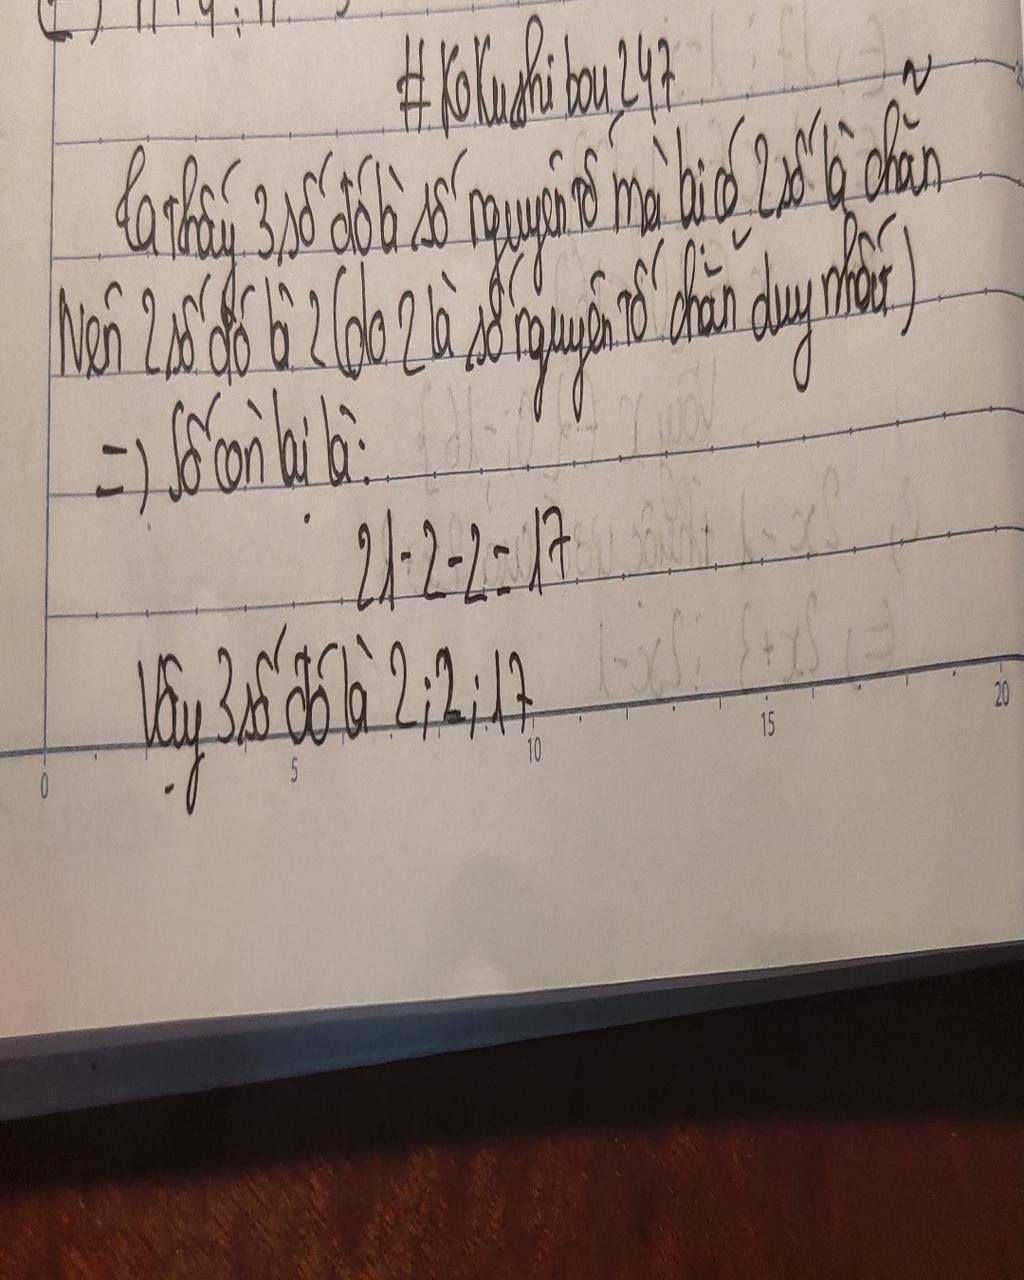 # Kokushibou247
Ta thấy 3 số đó là số nguyên tố mà lại có 2 số là chẵn
Nên 2 số đó là 2 (do 2 là số nguyên tố chẵn duy nhất)
=) Số còn lại là:
21-2-2=17
Vậy 3 số đó là 2;2;17
0 5 10 15 20